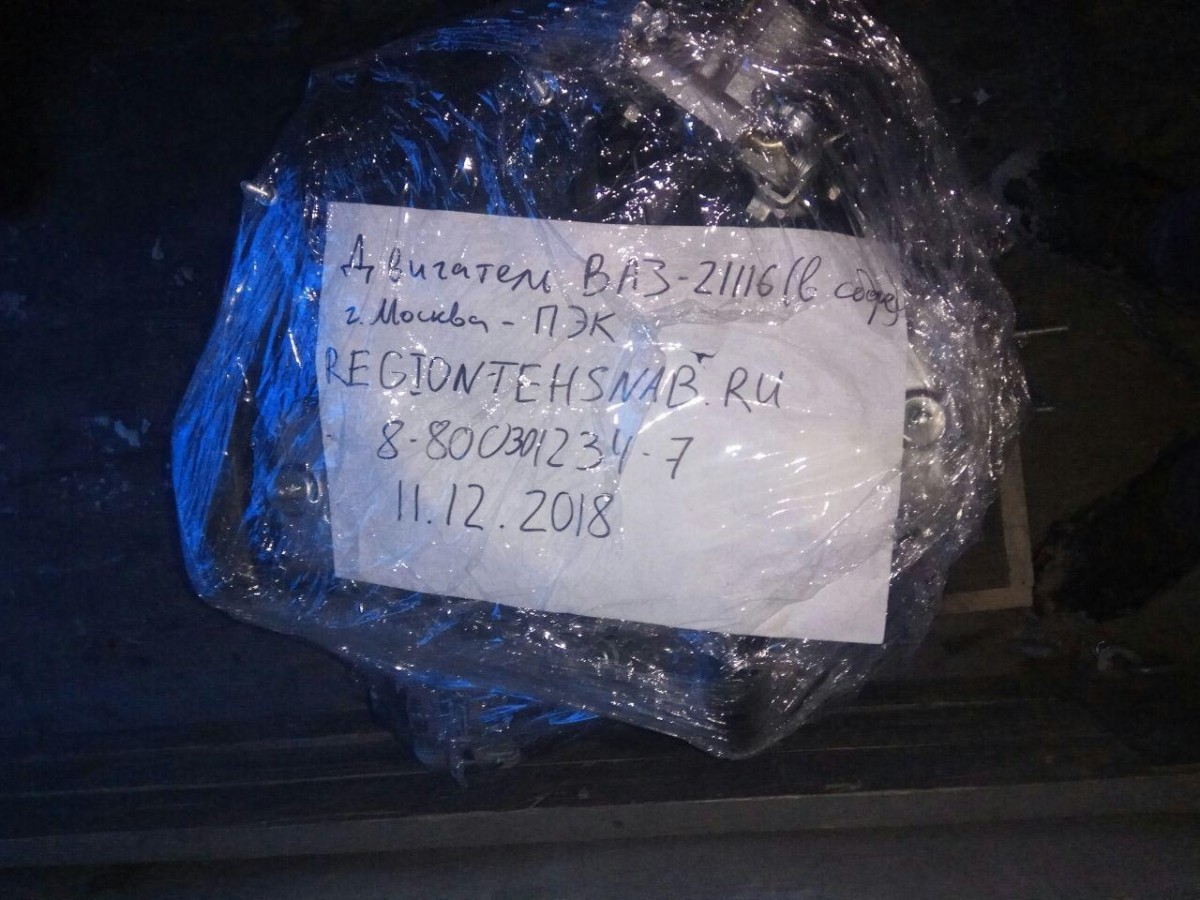 Двигатель ВАЗ-21116 (в сборе)
г. Москва - ПЭК
REGIONTEHSNAB.RU
8-800301234-7
11.12.2018